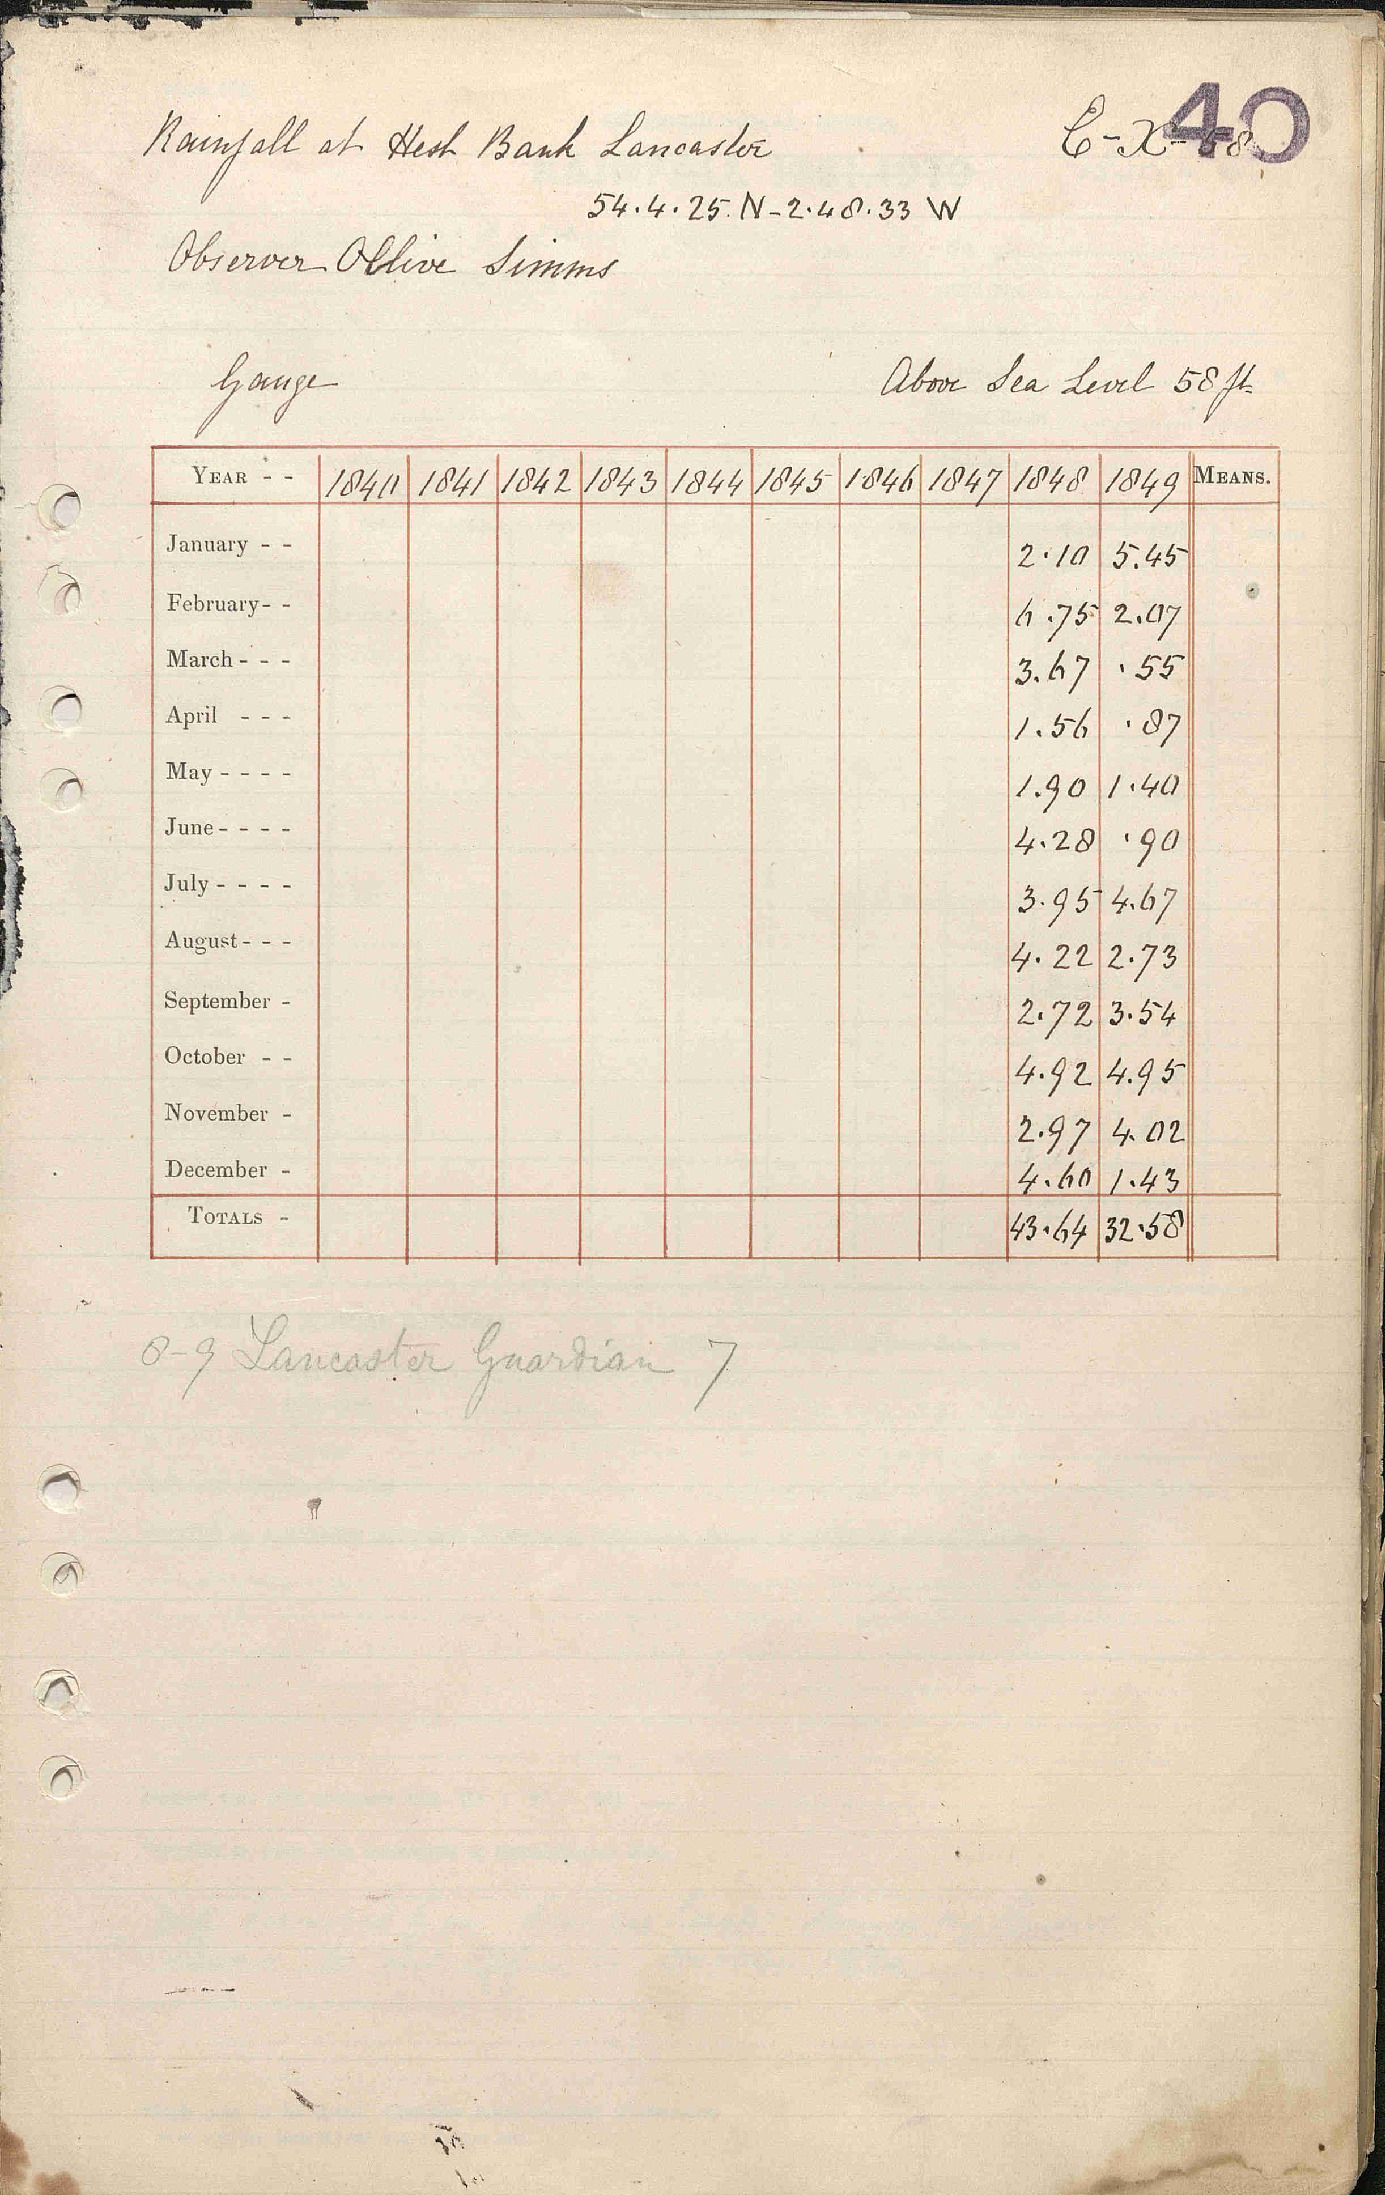 40
Rainfall at Hest Bank Lancaster
54.4.25.N-2.48.33 W
Observer Ollive Simms
Gauge Above Sea Level 58 ft.
YEAR - - 1840 1841 1842 1843 1844 1845 1846 1847 1848 1849 MEANS.
January - - 2.10 5.45
February- - 6.75 2.07
March - - - 3.67 .55
April - - - 1.56 .87
May - - - - 1.90 1.40
June - - - - 4.28 .90
July - - - - 3.95 4.67
August - - - 4.22 2.73
September - 2.72 3.54
October - - 4.92 4.95
November - 2.97 4.02
December - 4.60 1.43
TOTALS - 43.64 32.58
8-9 Lancaster Guardian 7